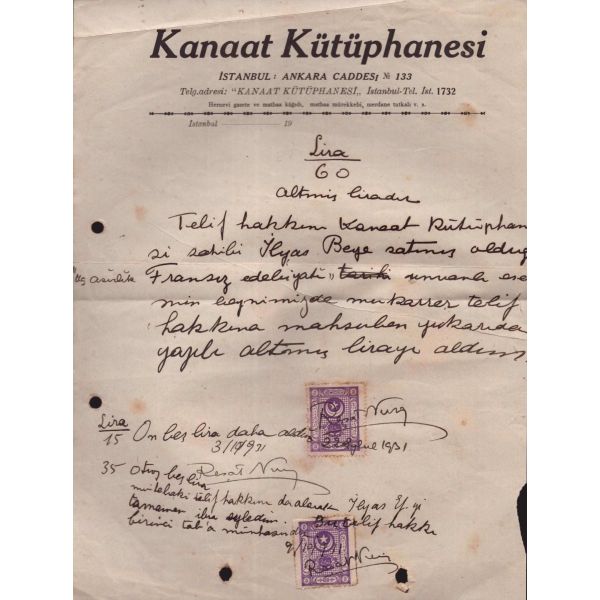 Kanaat Kütüphanesi
İSTANBUL: ANKARA CADDESİ № 133
Telg.adresi: "KANAAT KÜTÜPHANESİ„ İstanbul-Tel. Ist. 1732
Hernevi gazete ve matbaa kâğıdı, matbaa mürekkebi, merdane tutkalı v. s.
İstanbul 19
Lira
60
altmış liradır
Telif hakkını Kanaat Kütüphan
si sahibi İlyas Beye satmış olduğ
Fransız edebiyatı „ tarihi unvanlı ese
min beynimizde mukarrer telif
hakkına mahsuben yukarıda
yazılı altmış lirayı aldım
Lira
15 On beş lira daha aldım
Eylul 1931
35 Otuz beş lira
Reşat Nuri
mütebaki telif hakkını da alarak İlyas Ef. yi
tamamen ibra eyledim. Bu telif hakkı
birinci tab'a münhasırdır
Reşat Nuri